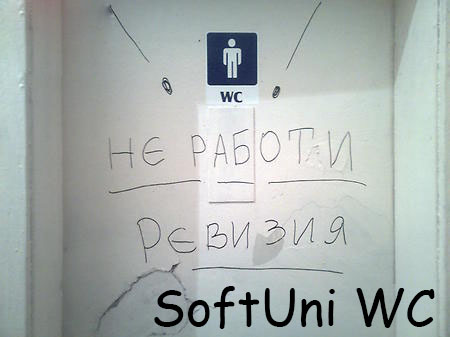 WC
НЕ РАБОТИ
РЕВИЗИЯ
SoftUni WC